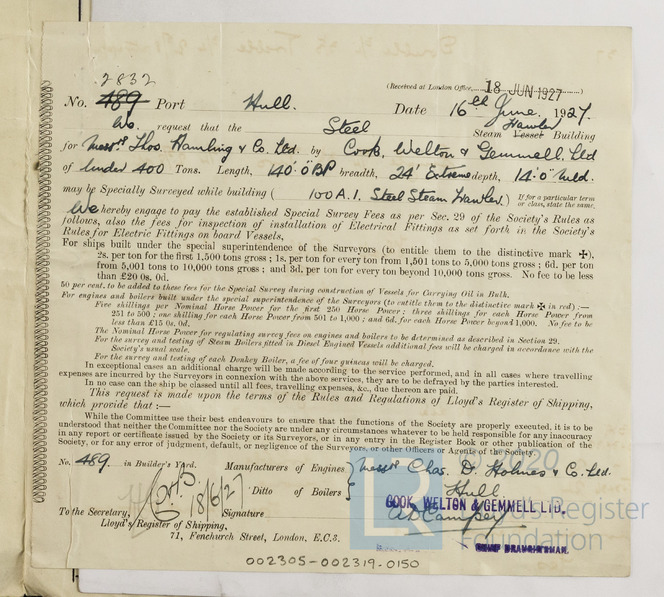 2832
(Received at London Office 18 JUN 1927)
No. 489 Port Hull. Date 16th June, 1927.
We request that the Steel Steam Vessel Trawler Building
for Messrs Thos. Hamling & Co. Ltd. by Cook, Welton & Gemmell, Ltd
of under 400 Tons. Length, 140'.0" BP breadth, 24' Extreme depth, 14'.0" Mld.
may be Specially Surveyed while building ( 100 A.1. Steel Steam Trawler ) If for a particular term or class, state the same.
We hereby engage to pay the established Special Survey Fees as per Sec. 29 of the Society's Rules as
follows, also the fees for inspection of installation of Electrical Fittings as set forth in the Society's
Rules for Electric Fittings on board Vessels,
For ships built under the special superintendence of the Surveyors (to entitle them to the distinctive mark ✠),
2s. per ton for the first 1,500 tons gross; 1s. per ton for every ton from 1,501 tons to 5,000 tons gross; 6d. per ton
from 5,001 tons to 10,000 tons gross; and 3d. per ton for every ton beyond 10,000 tons gross. No fee to be less
than £20 0s. 0d.
50 per cent. to be added to these fees for the Special Survey during construction of Vessels for Carrying Oil in Bulk.
For engines and boilers built under the special superintendence of the Surveyors (to entitle them to the distinctive mark ✠ in red) :—
Five shillings per Nominal Horse Power for the first 250 Horse Power; three shillings for each Horse Power from
251 to 500; one shilling for each Horse Power from 501 to 1,000; and 6d. for each Horse Power beyond 1,000. No fee to be
less than £15 0s. 0d.
The Nominal Horse Power for regulating survey fees on engines and boilers to be determined as described in Section 29.
For the survey and testing of Steam Boilers fitted in Diesel Engined Vessels additional fees will be charged in accordance with the
Society's usual scale.
For the survey and testing of each Donkey Boiler, a fee of four guineas will be charged.
In exceptional cases an additional charge will be made according to the service performed, and in all cases where travelling
expenses are incurred by the Surveyors in connexion with the above services, they are to be defrayed by the parties interested.
In no case can the ship be classed until all fees, travelling expenses, &c., due thereon are paid.
This request is made upon the terms of the Rules and Regulations of Lloyd's Register of Shipping,
which provide that :—
While the Committee use their best endeavours to ensure that the functions of the Society are properly executed, it is to be
understood that neither the Committee nor the Society are under any circumstances whatever to be held responsible for any inaccuracy
in any report or certificate issued by the Society or its Surveyors, or in any entry in the Register Book or other publication of the
Society, or for any error of judgment, default, or negligence of the Surveyors, or other Officers or Agents of the Society.
No. 489. in Builder's Yard. Manufacturers of Engines Messrs Chas. D. Holmes & Co. Ltd.
Ditto of Boilers Hull
18/6/27
COOK, WELTON & GEMMELL LTD.
To the Secretary, Signature
Lloyd's Register of Shipping,
71, Fenchurch Street, London, E.C.3.
CHIEF DRAUGHTSMAN.
002305-002319-0150
2020
LR
Lloyd's Register
Foundation